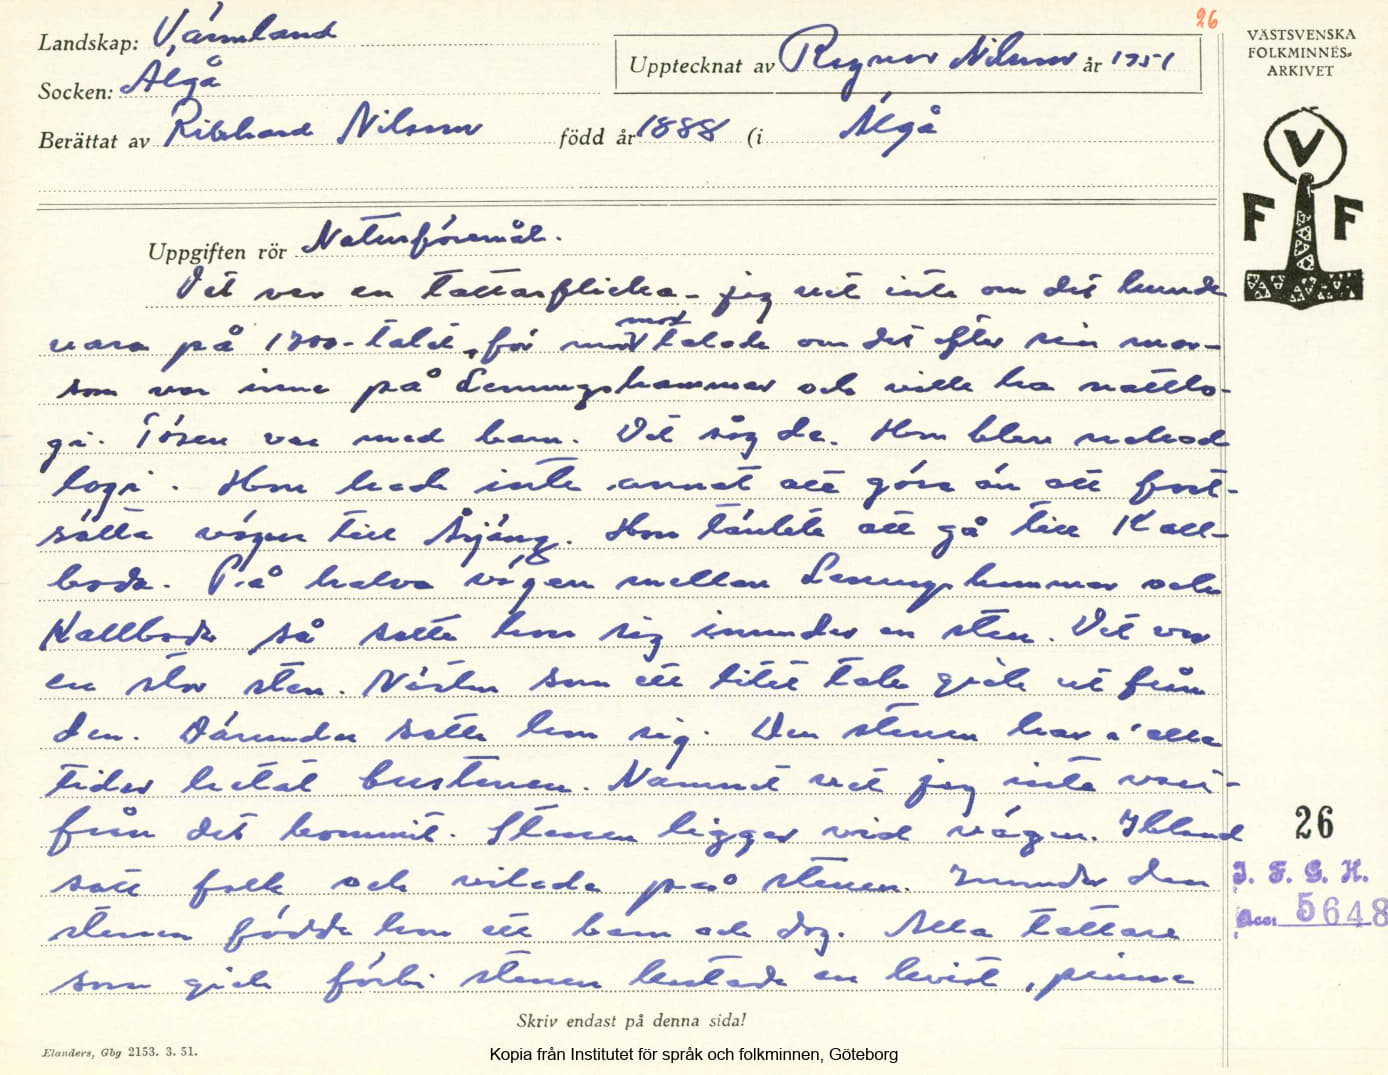 26
Landskap: Värmland
Upptecknat av Ragnar Nilsson år 1951
VÄSTSVENSKA
FOLKMINNES-
ARKIVET
Socken: Älgå
Berättat av Rikhard Nilsson född år 1888 (i Älgå
V
F F
Uppgiften rör Naturföremål.
Det var en tattarflicka - jag vet inte om det kunde
vara på 1700-talet, för mor talade om det efter sin mor-
som var inne på Lenungshammar och ville ha nattlo-
gi. Tösen var med barn. Det såg de. Hon blev nekad
logi. Hon hade inte annat att göra än att fort-
sätta vägen till Årjäng. Hon tänkte att gå till Kall-
boda. På halva vägen mellan Lenungshammar och
Kallboda så satte hon sig inunder en sten. Det var
en stor sten. Nästan som ett litet tak gick ut från
den. Därunder satte hon sig. Den stenen har i alla
tider hetat Namnet vet jag inte vari-
från det kommit. Stenen ligger vid vägen. Ibland
satt folk och vilade på stenen. Inunder den
stenen födde hon ett barn och dog. Alla tattare
som gick förbi stenen kastade en kvist, pinne
26
I. F. G. H.
Acc. 5648
Skriv endast på denna sida!
Elanders, Gbg 2153. 3. 51.
Kopia från Institutet för språk och folkminnen, Göteborg